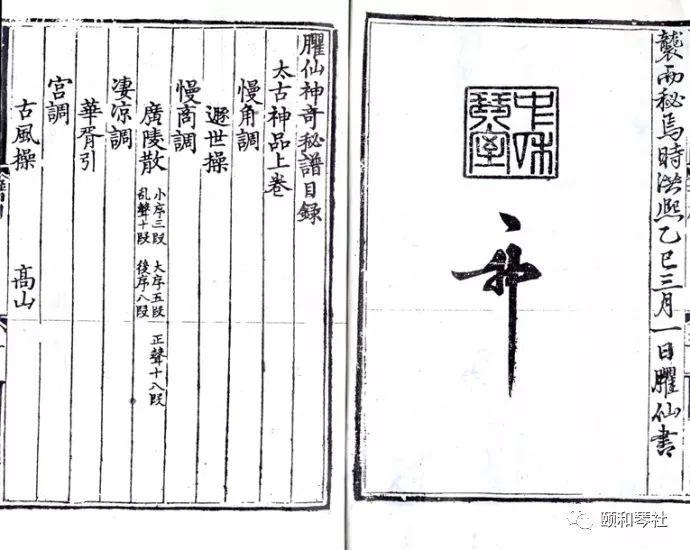 襲而秘焉時洪熙乙巳三月一日臞仙書
中和琴室
臞仙神奇秘譜目録
太古神品上卷
慢角調
遯世操
慢商調
廣陵散 小序三段 大序五段 正聲十八段
乱聲十段 後序八段
凄凉調
華胥引
宮調
古風操 高山
颐和琴社